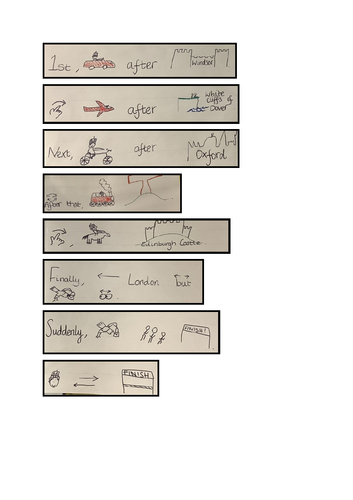 1st, after Windsor
after White Cliffs of Dover
Next, after Oxford
After that
, Edinburgh Castle
Finally, London but
Suddenly, FINISH!
FINISH